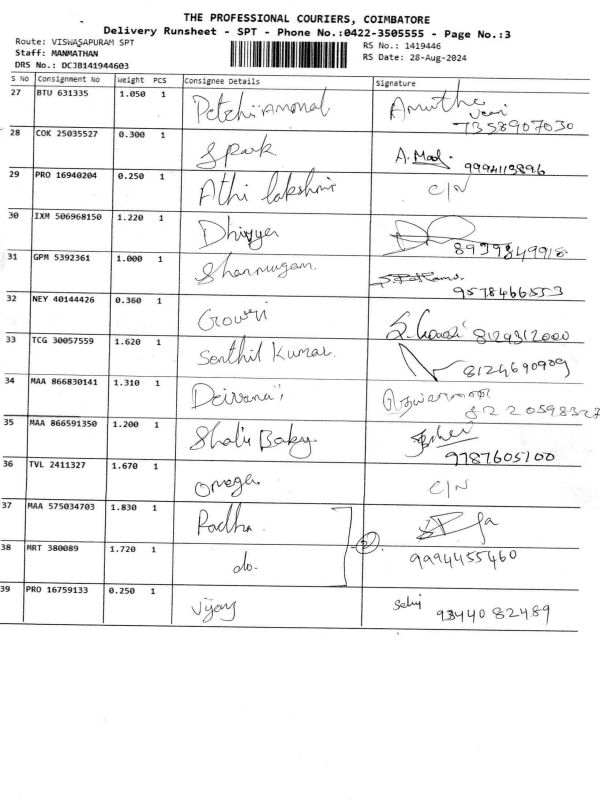 THE PROFESSIONAL COURIERS, COIMBATORE
Delivery Runsheet - SPT - Phone No.:0422-3505555 - Page No.:3
Route: VISWASAPURAM SPT
Staff: MANMATHAN
DRS No.: DCJB141944603
RS No.: 1419446
RS Date: 28-Aug-2024
S No Consignment No Weight PCS Consignee Details Signature
27 BTU 631335 1.050 1 Petchiammal Amutha
7358907030
28 COK 25035527 0.300 1 Spark A. Mad.
9994113896
29 PRO 16940204 0.250 1 Athi lakshmi C/N
30 IXM 506968150 1.220 1 Dhivya
8939849918
31 GPM 5392361 1.000 1 Shanmugam.
9578466553
32 NEY 40144426 0.360 1 Gowri 8129312000
33 TCG 30057559 1.620 1 Senthil Kumar.
8124690909
34 MAA 866830141 1.310 1 Deivanai
8220598327
35 MAA 866591350 1.200 1 Shalu Baby
9787605100
36 TVL 2411327 1.670 1 Omega C/N
37 MAA 575034703 1.830 1 Radha
38 MRT 380089 1.720 1 do. 2 9994455460
39 PRO 16759133 0.250 1 Vijay Selvi
9344082489